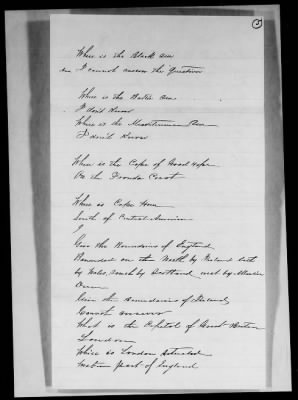 5
Where is the Black Sea
Ans I cannot answer the question
Where is the Baltic Sea
I don't Know
Where is the Mediterranean Sea
I don't Know
Where is the Cape of Good Hope
On the Florida Coast
Where is Cape Horn
South of Central America
Give the Boundaries of England
Bounded on the North by Ireland East
by Wales, South by Scotland west by Atlantic
Ocean
Give the boundaries of Ireland
Cannot answer
What is the Capitol of Great Britain
London
Where is London situated
part of England